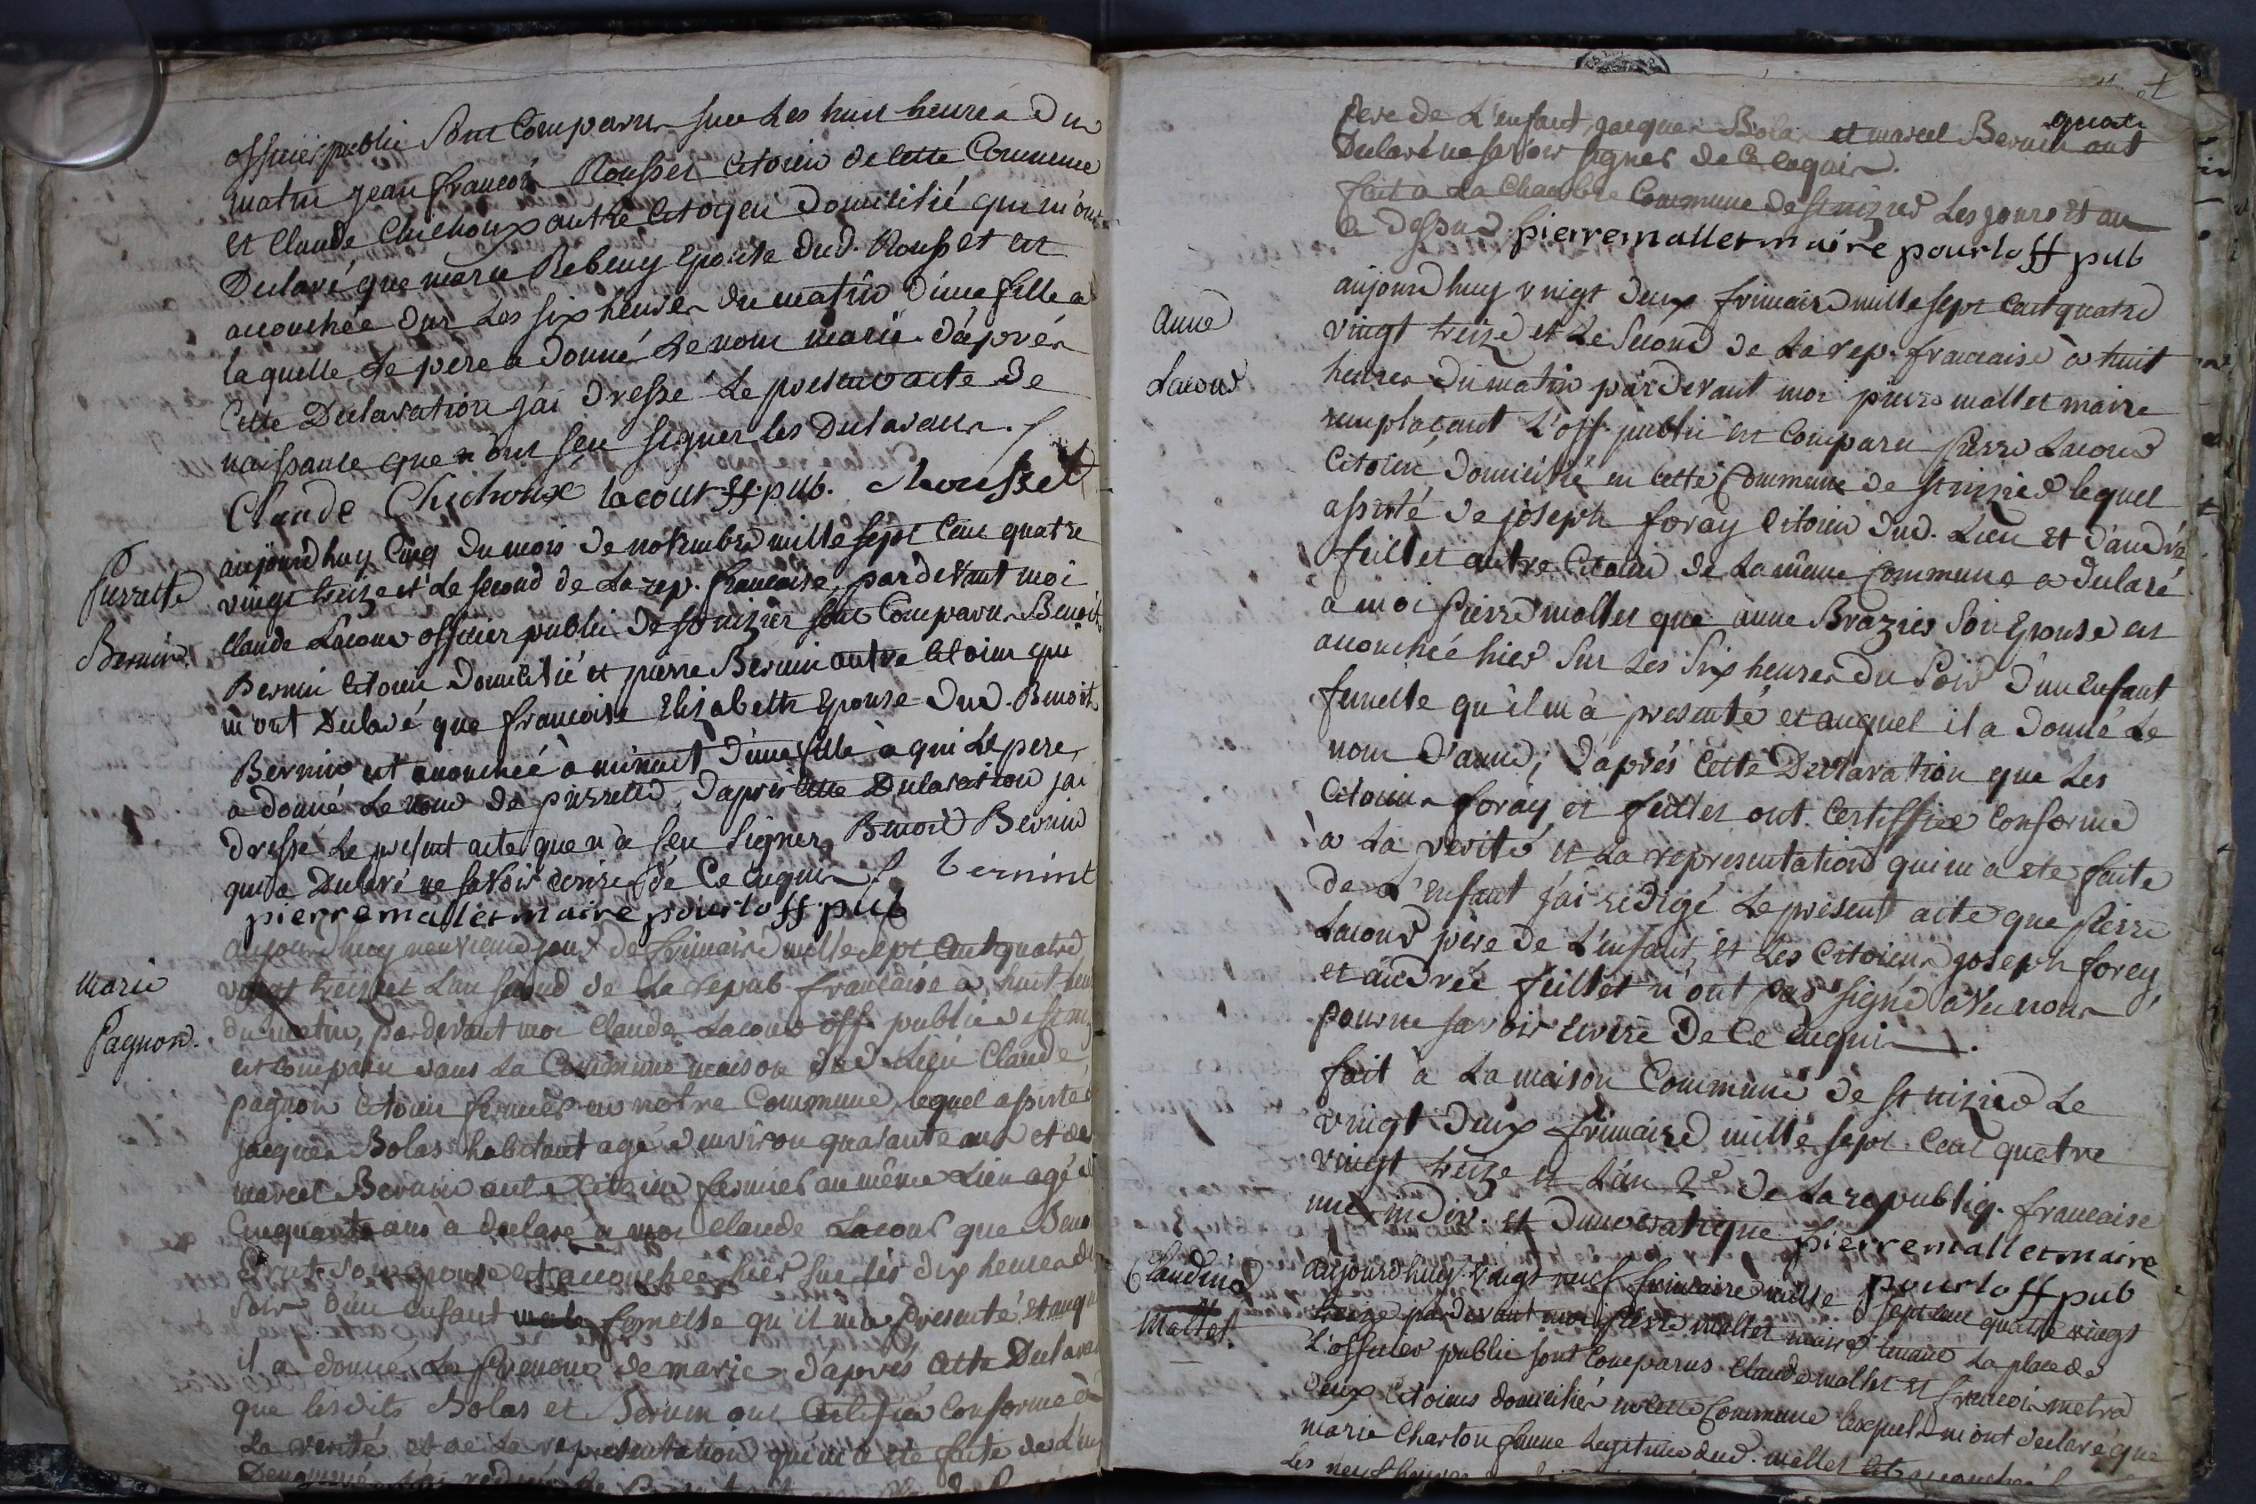 officier public sont comparus sur les huit heures du
matin jean francois Rousset citoien de cette commune
et Claude Chichoux autre citoyen domicilié qui m'ont
declaré que marie Rebeuy epouse dud. Rousset est
accouchée sur les six heures du matin d'une fille a
laquelle le pere a donné le nom marie. d'après
cette declaration j'ai dressé le present acte de
naissance que n'ont seu signer les declarans.
Claude Chichoux lacour off. pub. Rousset
aujourd'huy cinq du mois de novembre mille sept cent quatre
Pierrette
vingt treize et le second de la rep. francaise, pardevant moi
Claude Lacour officier public de st nizier sont comparus Benoit
Bernin.
Bernin citoien domicilié et pierre Bernin autre citoien qui
m'ont declaré que francoise Elizabeth epouse dud. Benoit
Bernin est accouchée à minuit d'une fille à qui le pere
a donné le nom de pierrette, d'après cette declaration j'ai
dressé le present acte que n'a seu signer Benoit Bernin
qui a declaré ne savoir ecrire de ce enquis. bernint
pierre mallet maire pour loff pub
aujourd'huy neuvieme jour de frimaire mille sept cent quatre
marie
vingt treize et l'an second de la repub. francaise a huit heures
du matin, pardevant moi Claude Lacour off. public de st
Pagnon.
est comparu dans la commune maison dud. lieu Claude
pagnon citoien fermier en notre commune, lequel assisté
jacques Bolas habitant agé d'environ quarante ans et de
marcel Bernin autre citoien fermier au même lieu agé
cinquante ans à declaré a moi Claude Lacour que
son epouse est accouchée hier sur les dix heures du
soir d'un enfant male femelle qu'il m'a presenté, et auquel
il a donné le prenom de marie, d'après cette declaration
que lesdits Bolas et Bernin ont certifiée conforme à
la verité et de la representation qui m'a ete faite de
pere de l'enfant, jacques Bolas et marcel Bernin ont
declaré ne savoir signer de ce enquis.
fait a la chambre commune de st nizier les jours et an
ci dessus pierre mallet maire pour loff pub
aujourd'huy vingt deux frimaire mille sept cent quatre
anne
vingt treize et le second de la rep. francaise à huit
Lacour
heures du matin pardevant moi pierre mallet maire
remplacant l'off. public est comparu pierre Lacour
citoien, domicilié en cette commune de st nizier lequel
assisté de joseph foray citoien dud. lieu et d'andré
feillet autre citoien de la même commune a declaré
a moi pierre mallet que anne Brazier son epouse est
accouchée hier sur les six heures du soir d'un enfant
femelle qu'il m'a presenté et auquel il a donné le
nom d'anne; d'après cette declaration que les
citoiens foray et feillet ont certiffiée conforme
a la verité et la representation qui m'a ete faite
de l'enfant j'ai redigé le present acte que pierre
Lacour père de l'enfant, et les citoiens joseph forey,
et andrée feillet n'ont pas signé avec nous
pour ne savoir ecrire de ce enquis.
fait à la maison commune de st nizier le
vingt deux frimaire mille sept cent quatre
vingt treize et l'an 2e de la republiq. francaise
une indiv. et democratique pierre mallet maire
pour loff pub
Claudine
aujourd'huy vingt neuf frimaire mille sept cent quatre vingt
Mallet.
treize pardevant moi pierre mallet maire tenant la place de
l'officier public sont comparus Claude mallet et francois metra
deux citoiens domiciliés en cette commune lesquels m'ont declaré que
marie Charlon femme legitime dud. mallet est accouchée
les neuf heures